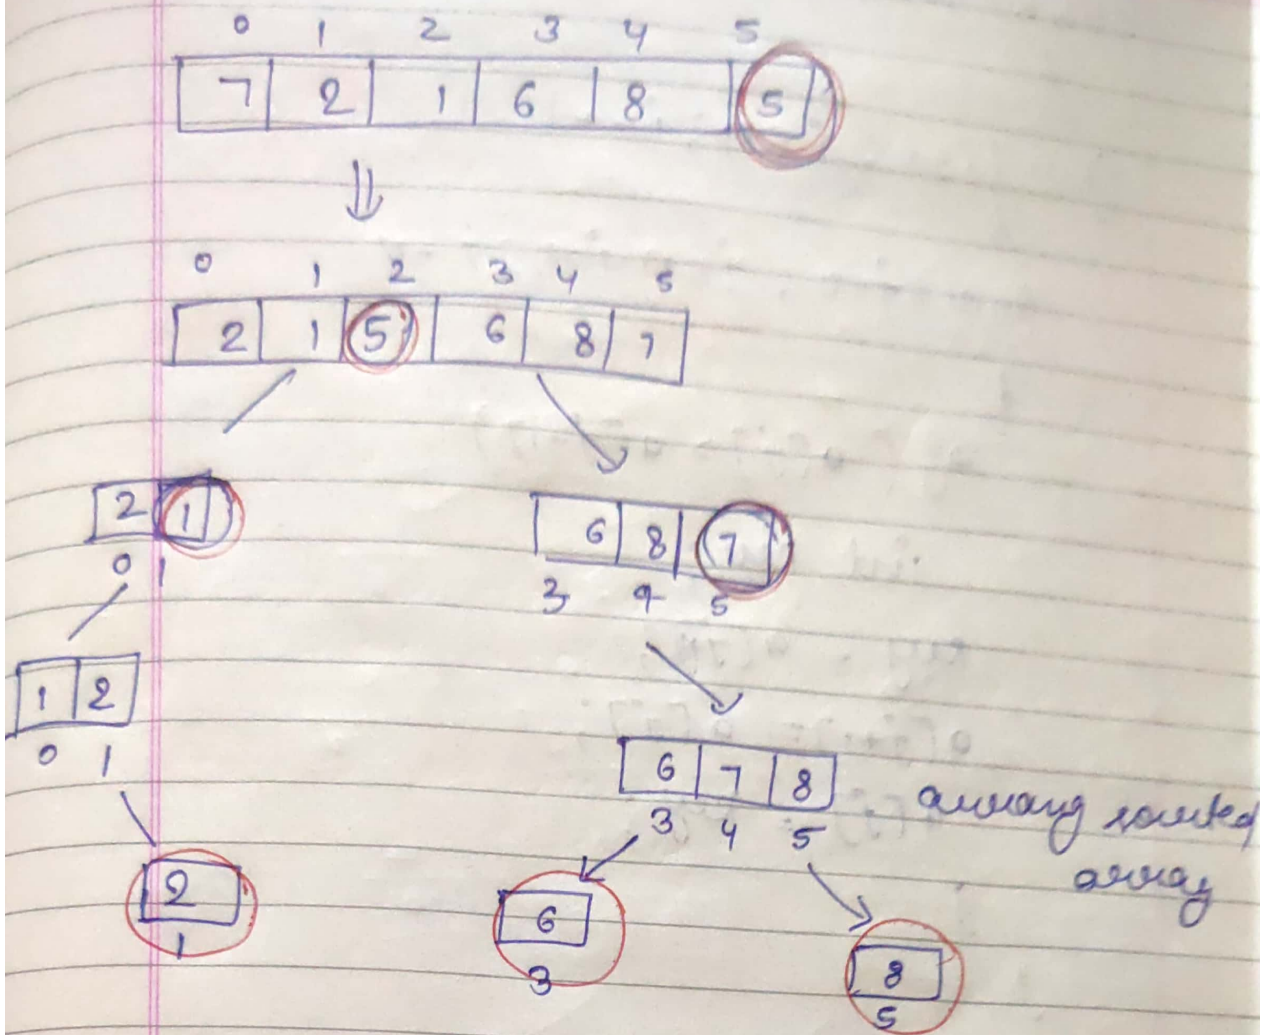 0 1 2 3 4 5
7 2 1 6 8 5
0 1 2 3 4 5
2 1 5 6 8 7
2 1 6 8 7
0 1 3 4 5
1 2
0 1
6 7 8
3 4 5
sorted
array
2 6 8
1 3 5